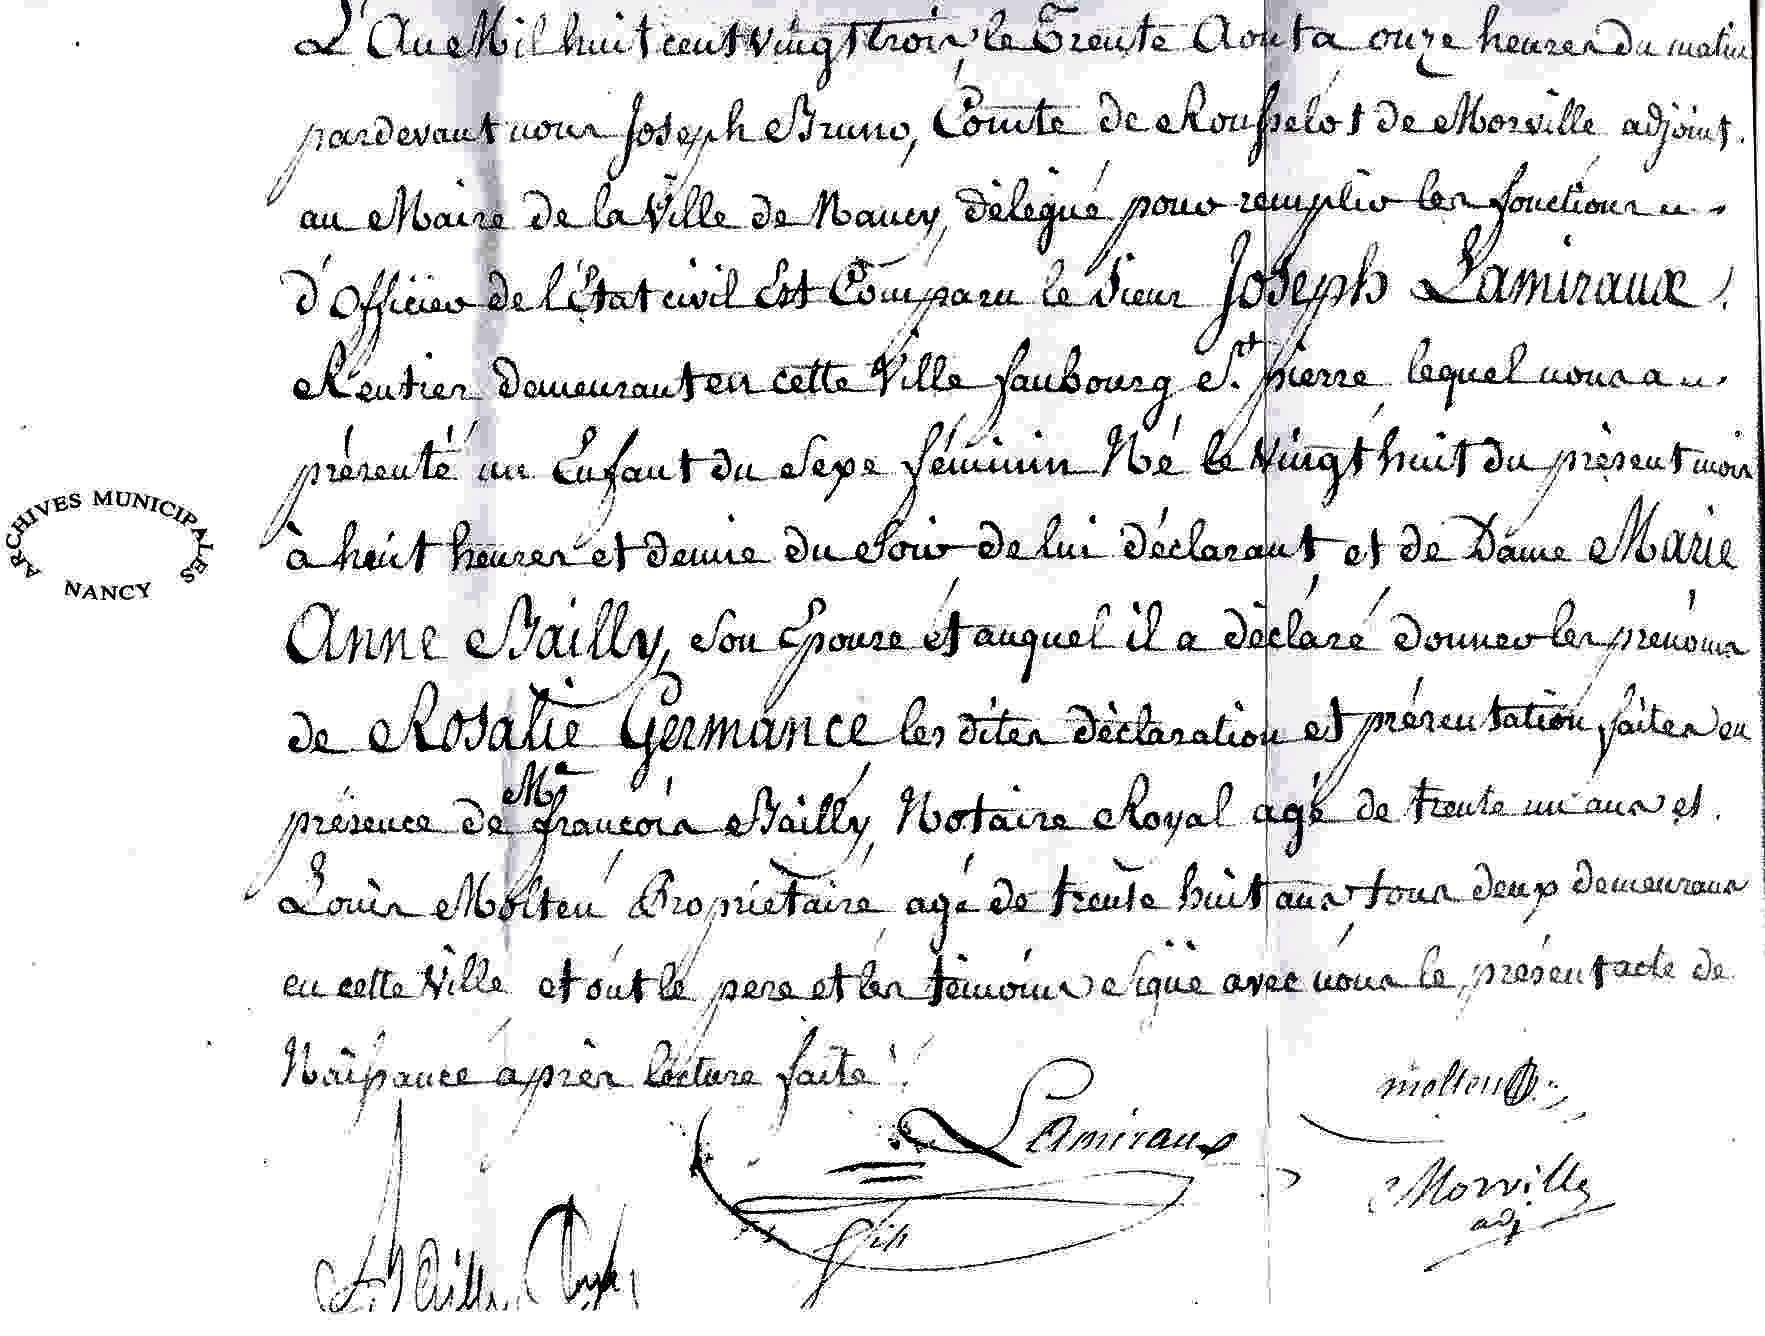 L'An Mil huit cent vingt trois, le Trente Aout a onze heures du matin
pardevant nous Joseph Bruno, Comte de Rousselot de Morville adjoint
au Maire de la Ville de Nancy, délégué pour remplir les fonctions
d'Officier de l'État civil Est Comparu le Sieur Joseph Lamiraux
Rentier demeurant en cette Ville faubourg St. pierre lequel nous a
présenté un Enfant du Sexe féminin Né le Vingt huit du présent mois
à huit heures et demie du Soir de lui déclarant et de Dame Marie
Anne Bailly, Son Epouse et auquel il a déclaré donner les prénoms
de Rosalie Germance les dites déclaration et présentation faites en
présence de Me françois Bailly, Notaire Royal agé de trente un ans et
Louis Molteu Propriétaire agé de trente huit ans tous deux demeurans
en cette Ville et ont le pere et les témoins Signé avec nous le présent acte de
Naissance après lecture faite
ARCHIVES MUNICIPALES
NANCY
molteu
Lamiraux
fils
Morville
adj
Bailly